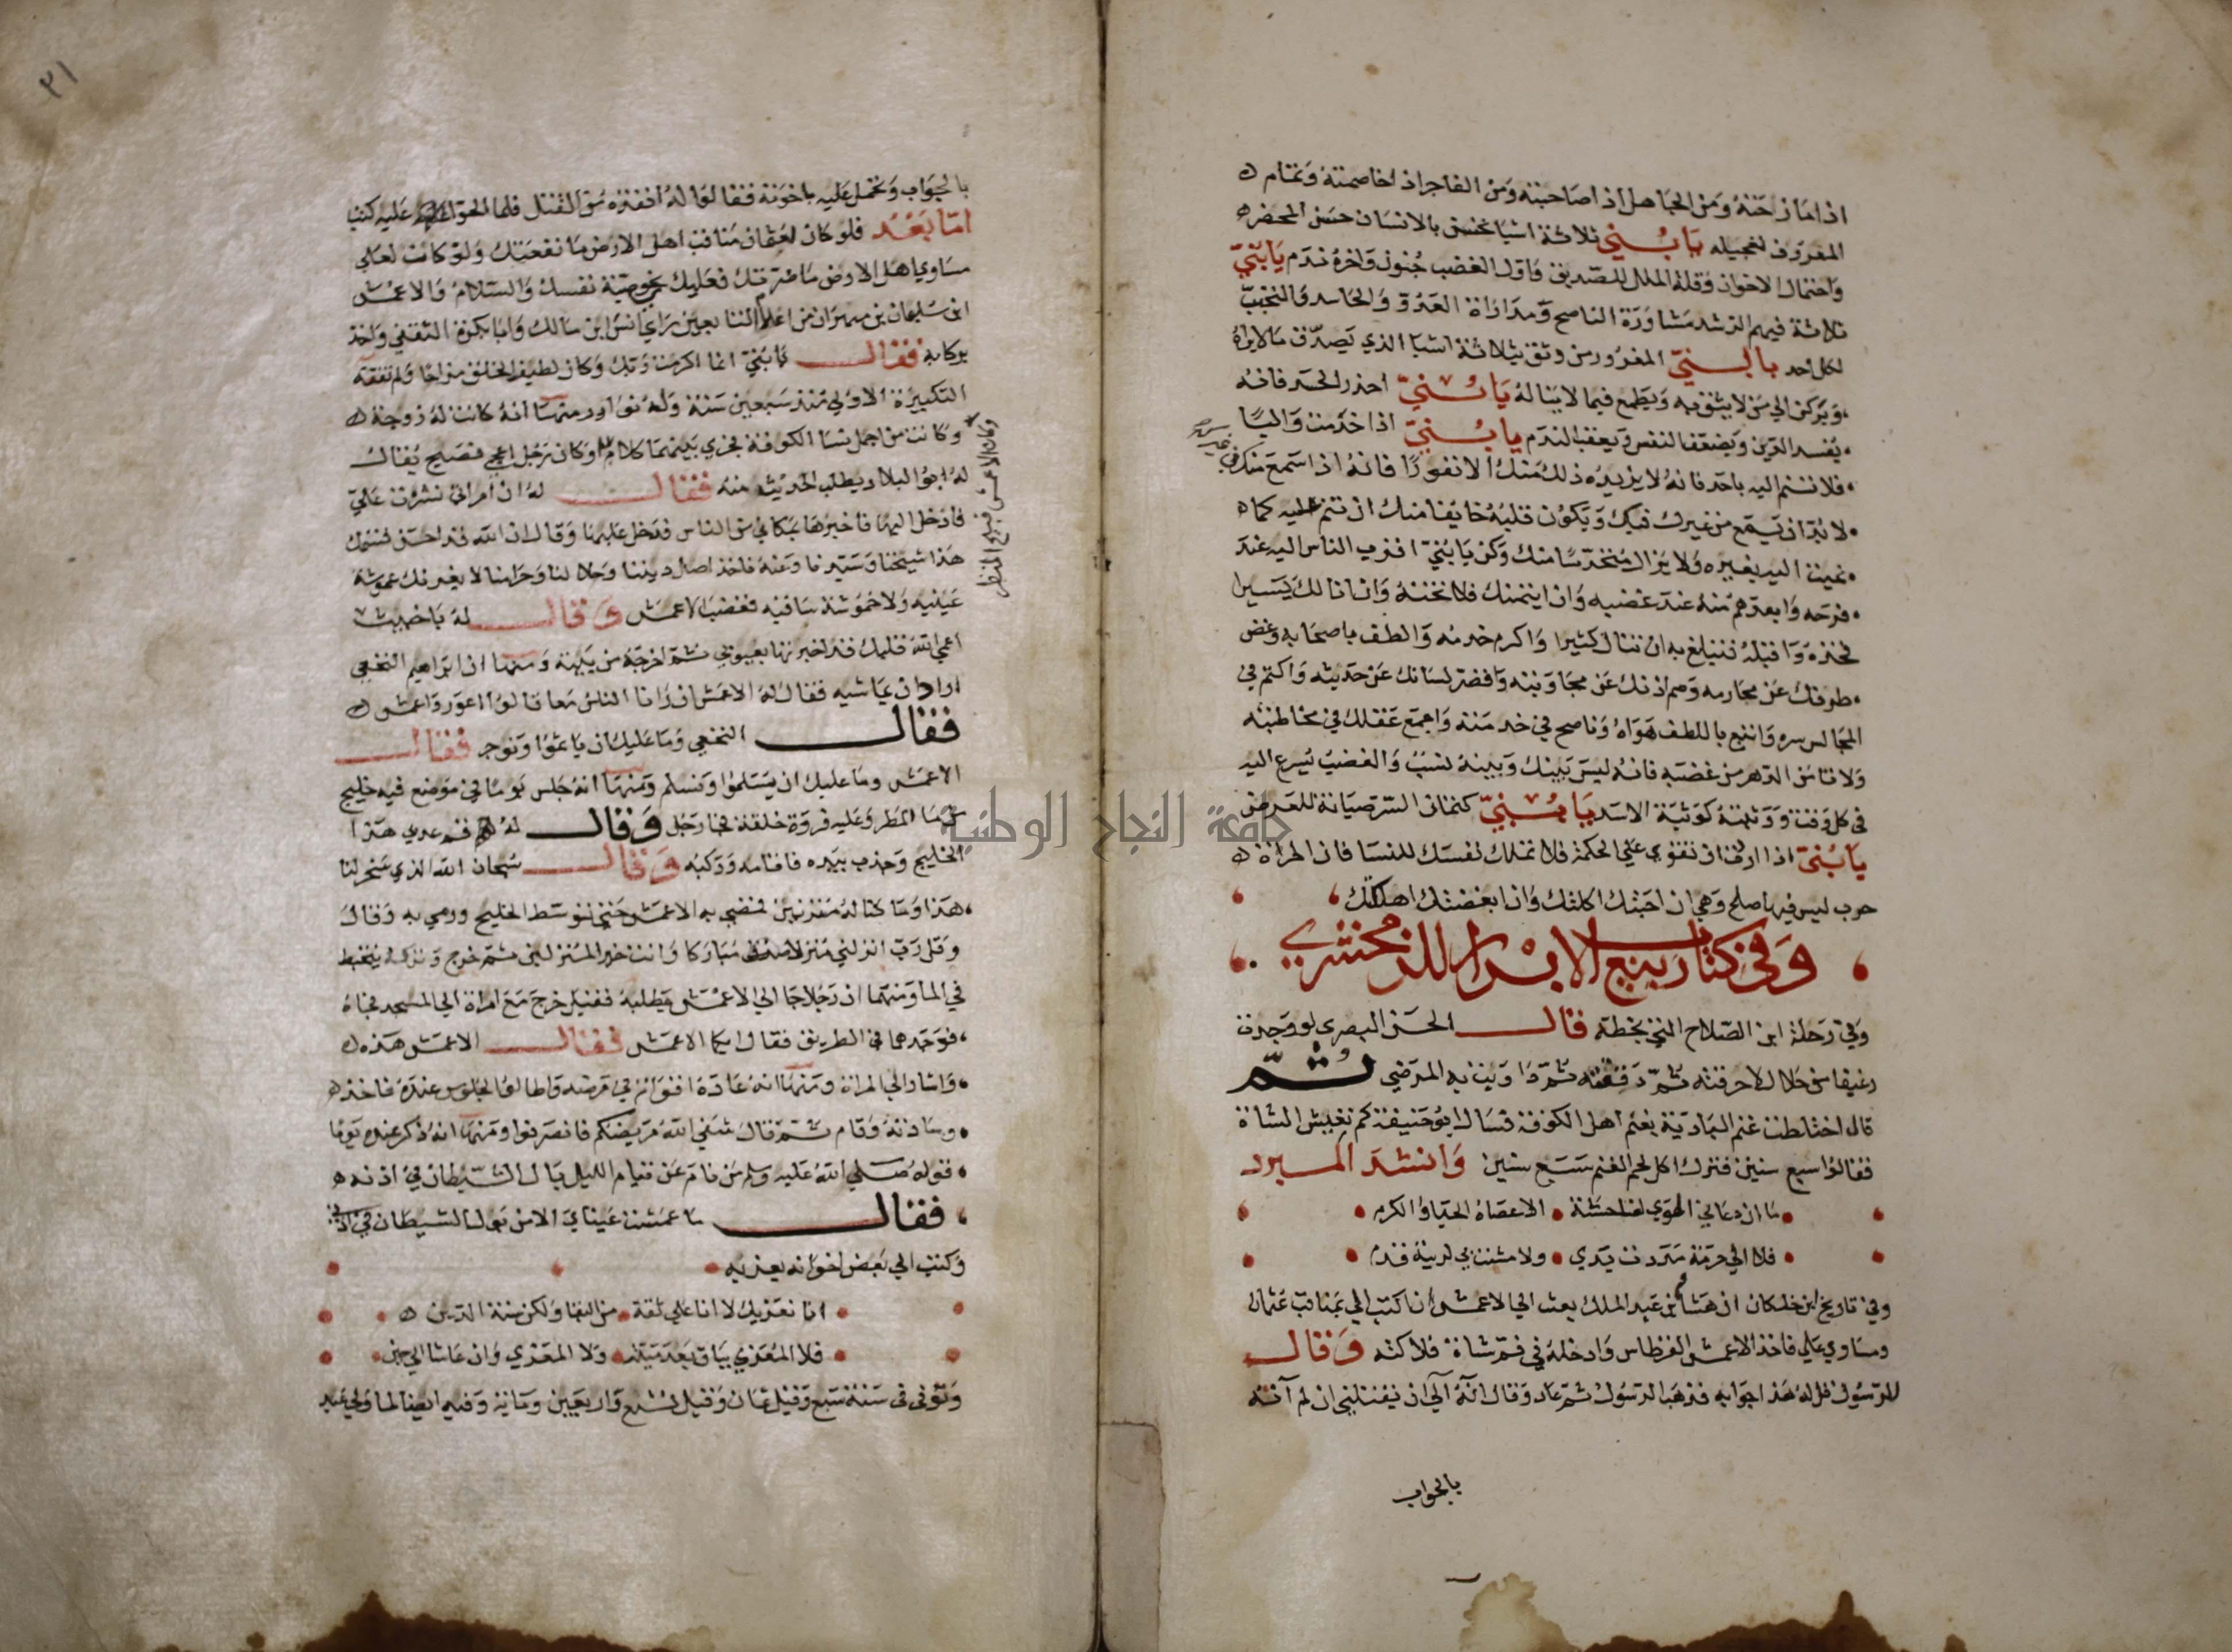 اذا مازحته ومن الجاهل اذا صاحبته ومن الفاجر اذا خاصمته وتمام
المعروف تعجيله يا بني ثلاثة اشيا تحسن بالانسان حسن المحضر
واحتمال الاخوان وقلة الملل للصديق واول الغضب جنون واخره ندم يا بني
ثلاثة فيهم الرشد مشاورة الناصح ومداراة العدو والحاسد والتحبب
لكل احد يا بني المغرور من وثق بثلاثة اشيا الذي يصدق مالا يراه
ويركن الي من لا يثق به ويطمع فيما لا يناله يا بني احذر الحسد فانه
يفسد الدين ويضعف النفس ويعقب الندم يا بني اذا خدمت واليا
فلا تنم اليه باحد فانه لا يزيده ذلك منك الا نفورا فانه اذا سمع منك في غيرك
لا بد ان يسمع من غيرك فيك ويكون قلبه خايفا منك ان تنم عليه كما
نميت اليه بغيره ولا يزال متحدسا منك وكن يا بني اقرب الناس اليه عند
فرحه وابعدهم منه عند غضبه وان ايتمنك فلا تخنه وان انالك يسيرا
فخذه واقبله فتبلغ به ان تنال كثيرا واكرم خدمه والطف باصحابه وغض
طرفك عن محارمه وصم اذنك عن مجاوبته واقصر لسانك عن حديثه واكتم في
المجالس سره واتبع باللطف هواه وناصح في خدمته واجمع عقلك في مخاطبته
ولا تامن الدهر من غضبه فانه ليس بينك وبينه نسب والغضب يسرع اليه
في كل وقت ووثبته كوثبة الاسد يا بني كتمان السر صيانة للعرض
يا بني اذا اردت ان تقوي علي الحكمة فلا تملك نفسك للنسا فان المراة
حرب ليس فيها صلح وهي ان احبتك اكلتك وان ابغضتك اهلكتك
وفي كتاب ربيع الابرار للزمخشري
وفي رحلة ابن الصلاح التي بخطه قال الحسن البصري لو وجدت
رغيفا من حلال لاحرقته ثم دققته ثم داويت به المرضي ثم
قال اختلطت غنم البادية بغنم اهل الكوفة فسال ابو حنيفة كم تعيش الشاة
فقالوا سبع سنين فترك اكل لحم الغنم سبع سنين وانشد المبرد
ما ان دعاني الهوي لفاحشة الا عصاه الحيا والكرم
فلا الي حرمة مددت يدي ولا مشت بي لريبة قدم
وفي تاريخ ابن خلكان ان هشام بن عبد الملك بعث الي الاعمش ان اكتب الي بمناقب عثمان
ومساوي علي فاخذ الاعمش القرطاس وادخله في فم شاة فلاكته وقال
للرسول قل له هذا جوابه فذهب الرسول ثم عاد وقال انه آلي ان يقتلني ان لم آته
بالجواب
٢١
بالجواب وتحمل عليه باخوته فقالوا له افتده من القتل فلما الحوا عليه كتب
اما بعد فلو كان لعثمان مناقب اهل الارض ما نفعتك ولو كانت لعلي
مساوي اهل الارض ما ضرتك فعليك بخويصة نفسك والسلام والاعمش
ابن سليمان بن مهران من اعلام التابعين راي انس ابن مالك وابا بكرة الثقفي واخذ
بركابه فقال يا بني انما اكرمت ربك وكان لطيف الخلق مزاحا ولم تفته
التكبيرة الاولي منذ سبعين سنة وله نوادر منها انه كانت له زوجة
وكانت من اجمل نسا الكوفة فجري بينهما كلام وكان رجل اعمي فصيح يقال
له ابو البلاد يطلب الحديث منه فقال له ان امراتي نشزت علي
فادخل اليها فاخبرها بمكاني من الناس فدخل عليها وقال ان الله قد احسن قسمك
هذا شيخنا وسيدنا وعنه ناخذ اصل ديننا وحلالنا وحرامنا لا يغرنك عموشة
عينيه ولا حموشة ساقيه فغضب الاعمش وقال له يا خبيث
اعمي الله قلبك قد اخبرتها بعيوبي ثم اخرجه من بيته ومنها ان ابراهيم النخعي
اراد ان يماشيه فقال له الاعمش ان رانا الناس معا قالوا اعور واعمش
فقال النخعي وما عليك ان ياثموا ونوجر فقال
الاعمش وما عليك ان يسلموا ونسلم ومنها انه جلس يوما في موضع فيه خليج
من ما المطر وعليه فروة خلقة فجا رجل وقال له قم عدي هذا
الخليج وجذب بيده فاقامه وركبه وقال سبحان الله الذي سخر لنا
هذا وما كنا له مقرنين فمضي به الاعمش حتي توسط الخليج ورمي به وقال
وقل رب انزلني منزلا مباركا وانت خير المنزلين ثم خرج وتركه يتخبط
في الما ومنها ان رجلا جا الي الاعمش يطلبه فقيل خرج مع امراة الي المسجد فجاه
فوجدهما في الطريق فقال ايكما الاعمش فقال الاعمش هذه
واشار الي المراة ومنها انه عاده اقوام في مرضه واطالوا الجلوس عنده فاخذ
وسادته وقام ثم قال شفي الله مريضكم فانصرفوا ومنها انه ذكر عنده يوما
قوله صلي الله عليه وسلم من نام عن قيام الليل بال الشيطان في اذنه
فقال ما عمشت عيناي الا من بول الشيطان في اذني
وكتب الي بعض اخوانه يعزيه
انا نعزيك لا انا علي ثقة من البقا ولكن سنة الدين
فلا المعزي بباق بعد ميته ولا المعزي وان عاشا الي حين
وتوفي في سنة سبع وقيل ثمان وقيل تسع واربعين وماية وفيه ايضا لما ولي عبد
وكان الاعمش قبيح المنظر
جامعة النجاح الوطنية